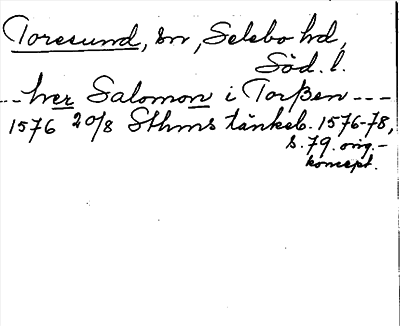 Toresund, sn, Selebo hd,
Söd. l.
... her Salomon i Torßen ---
1576 20/8 Sthms tänkeb. 1576-78,
s. 79. orig.-
koncept.